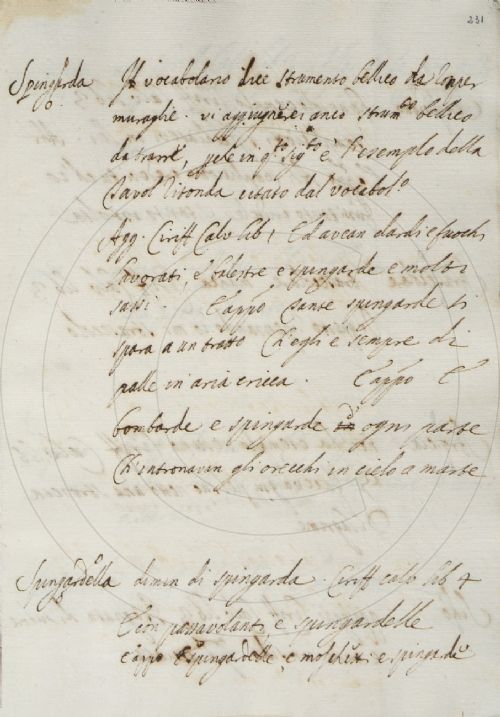 231
Spingarda Il vocabolario dice strumento bellico da romper
muraglie. vi aggiugnerei anco strum.to bellico
da trarre, che in q.to sig.to è l'esemplo della
Tavol Ritonda citato dal vocabol.o
Agg. Ciriff Calv lib 1 Ed avean dardi e fuochi
lavorati, e balestre e spingarde e molti
sassi. Tante spingarde si
spara a un tratto Ch'egli è sempre di
palle in aria ricca. E
bombarde e spingarde ogni parte
Ch'intronavan gli orecchi in cielo a marte
Spingardella dimin di spingarda. Ciriff calv lib 4
E con passavolanti, e spingardelle
e spingardelle, e moschetti e spingarde